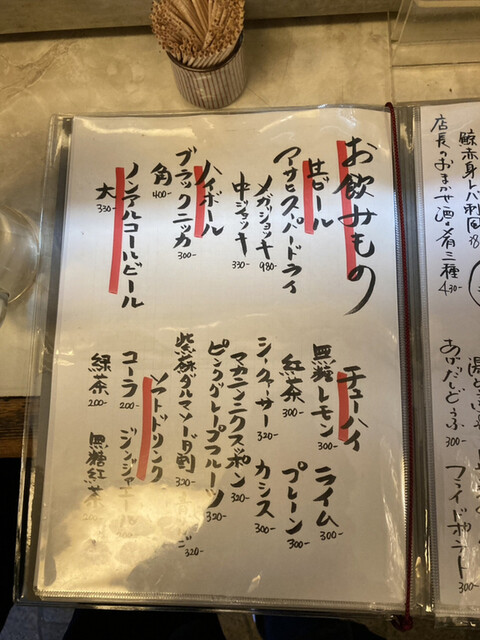 お飲みもの
生ビール
アサヒスーパードライ
メガジョッキ 980-
中ジョッキ 330-
ハイボール
角 400-
ブラックニッカ 300-
ノンアルコールビール
大 330-
チューハイ
無糖レモン 300-
ライム 300-
紅茶 300-
プレーン 300-
シークァーサー 320-
カシス 300-
マカテンニクスッポン 320-
ピンクグレープフルーツ 320-
紫蘇ダルマソーダ割 320-
ソフトドリンク
コーラ 200-
ジンジャエール
緑茶 200-
無糖紅茶
鯨赤身レバ刺風
店長のおまかせ酒肴三種 430-
あげだしどうふ 300-
フライドポテト 300-